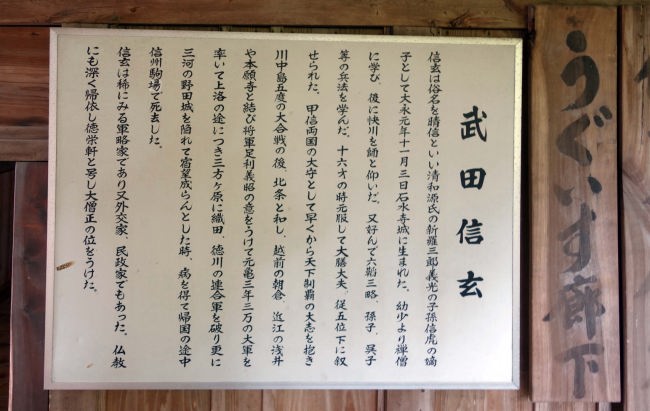 うぐいす廊下
武田信玄
信玄は俗名を晴信といい清和源氏の新羅三郎義光の子孫信虎の嫡
子として大永元年十一月三日石水寺城に生まれた。幼少より禅僧
に学び、後に快川を師と仰いだ。又好んで六韜三略、孫子、呉子
等の兵法を学んだ。十六才の時元服して大膳大夫、従五位下に叙
せられた。甲信両国の大守として早くから天下制覇の大志を抱き
川中島五度の大合戦の後、北条と和し、越前の朝倉、近江の浅井
や本願寺と結び将軍足利義昭の意をうけて元亀三年三万の大軍を
率いて上洛の途につき三方ヶ原に織田、徳川の連合軍を破り更に
三河の野田城を陥れて宿望成らんとした時、病を得て帰国の途中
信州駒場で死去した。
信玄は稀にみる軍略家であり又外交家、民政家でもあった。仏教
にも深く帰依し徳栄軒と号し大僧正の位をうけた。